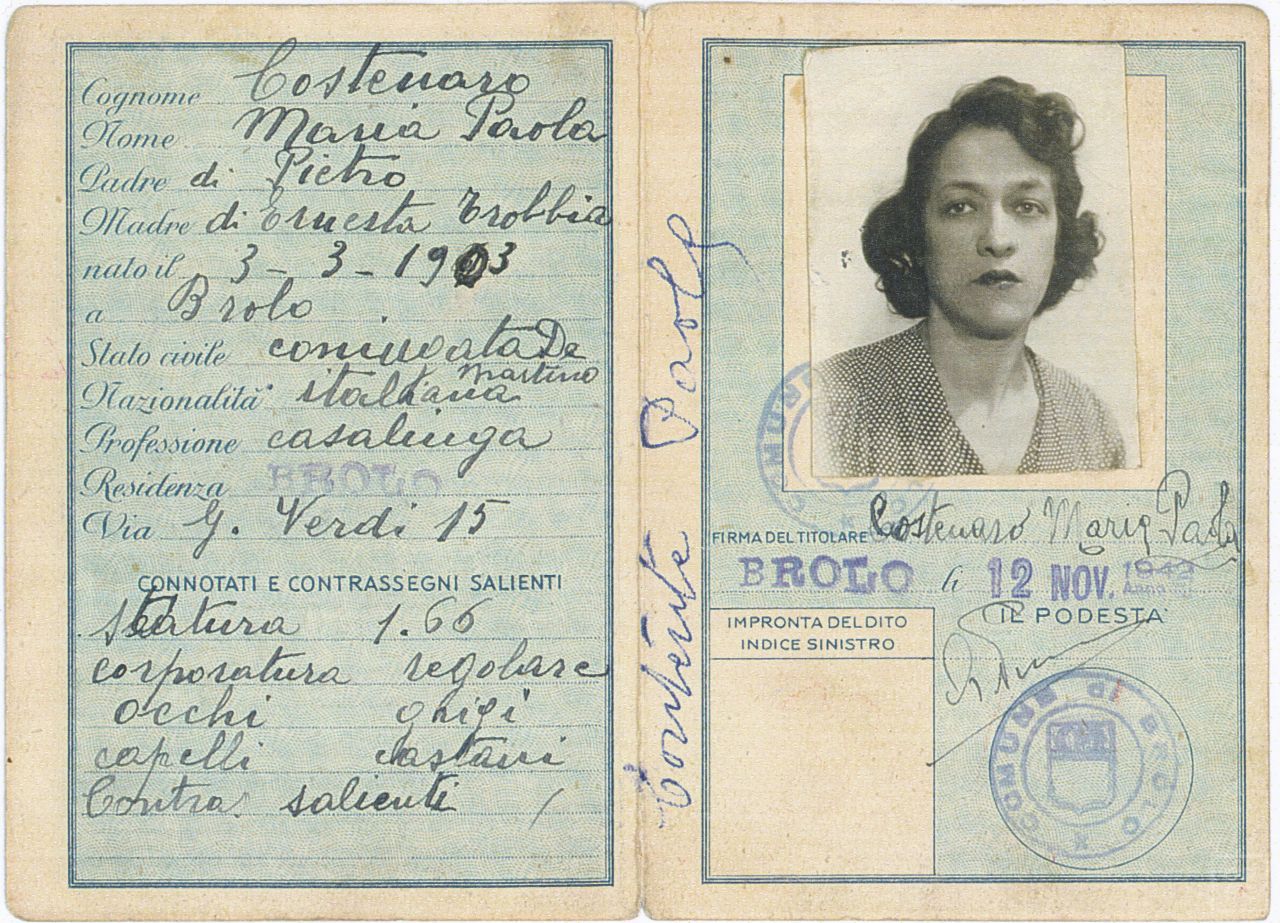 Cognome Costenaro
Nome Maria Paola
Padre di Pietro
Madre di Ernesta Trobbia
nato il 3-3-1903
a Brolo
Stato civile coniugata De
Martino
Nazionalità italiana
Professione casalinga
Residenza BROLO
Via G. Verdi 15
CONNOTATI E CONTRASSEGNI SALIENTI
Statura 1.66
corporatura regolare
occhi grigi
capelli castani
Contra. salienti /
Paola
FIRMA DEL TITOLARE Costenaro Maria Paola
BROLO li 12 NOV. 1942
IL PODESTA'
IMPRONTA DEL DITO
INDICE SINISTRO
COMUNE DI BROLO